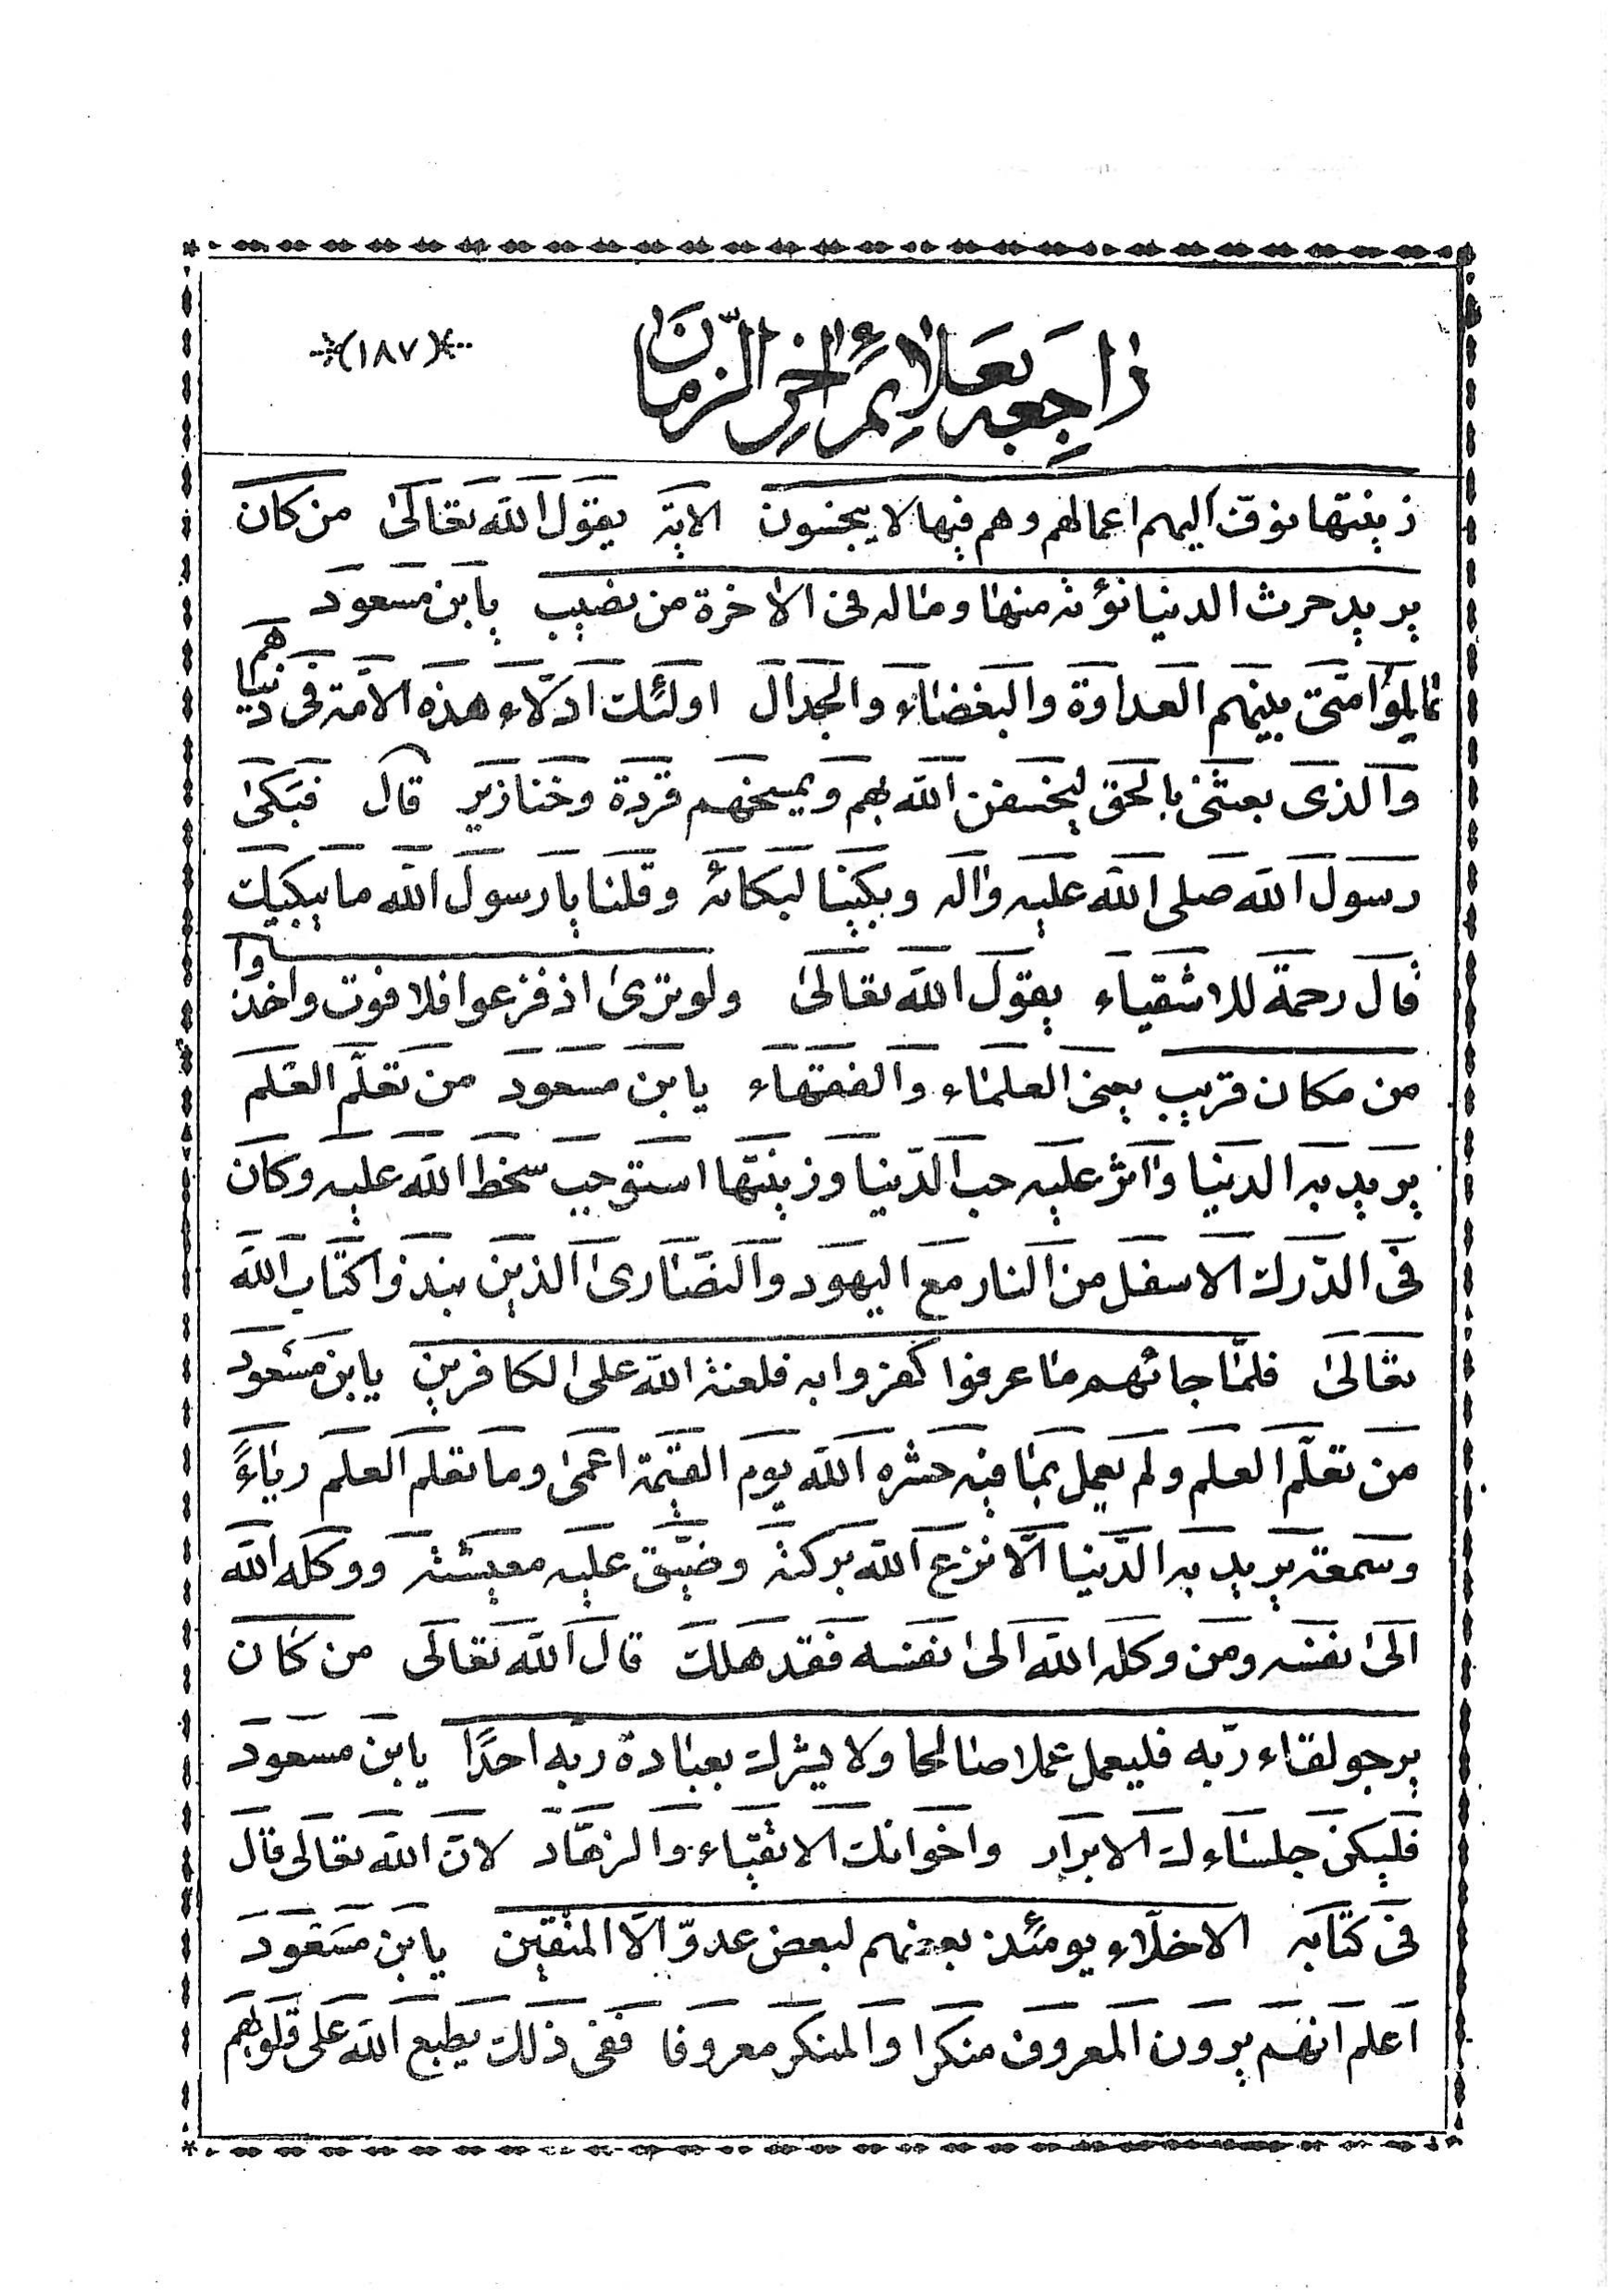 راجعه بعلائم اخر الزمان
(١٨٧)
زينتها نوف اليهم اعمالهم وهم فيها لا يبخسون الاية يقول الله تعالى من كان
يريد حرث الدنيا نؤته منها وماله فى الاخرة من نصيب يابن مسعود
بينهم العداوة والبغضاء والجدال اولئك ادلاء هذه الامة فى دنياهم
والذى بعثنى بالحق ليخسفن الله بهم ويمسخهم قردة وخنازير قال فبكى
رسول الله صلى الله عليه واله وبكينا لبكائه وقلنا يا رسول الله ما يبكيك
قال رحمة للاشقياء يقول الله تعالى ولو ترى اذ فزعوا فلا فوت واخذوا
من مكان قريب يعنى العلماء والفقهاء يابن مسعود من تعلّم العلم
يريد به الدنيا واثر عليه حب الدّنيا وزينتها استوجب سخط الله عليه وكان
فى الدّرك الاسفل من النار مع اليهود والنصارى الذين نبذوا كتاب الله
تعالى فلمّا جائهم ما عرفوا كفروا به فلعنة الله على الكافرين يابن مسعود
من تعلّم العلم ولم يعمل بما فيه حشره الله يوم القيمة اعمى وما تعلم العلم رياءً
وسمعة يريد به الدّنيا الّا نزع الله بركته وضيّق عليه معيشته ووكله الله
الى نفسه ومن وكله الله الى نفسه فقد هلك قال الله تعالى من كان
يرجو لقاء ربّه فليعمل عملا صالحا ولا يشرك بعبادة ربّه احدًا يابن مسعود
فليكن جلساءك الابرار واخوانك الاتقياء والزهّاد لانّ الله تعالى قال
فى كتابه الاخلّاء يومئذ بعضهم لبعض عدوّ الّا المتقين يابن مسعود
اعلم انهم يرون المعروف منكرا والمنكر معروفا ففى ذلك يطبع الله على قلوبهم